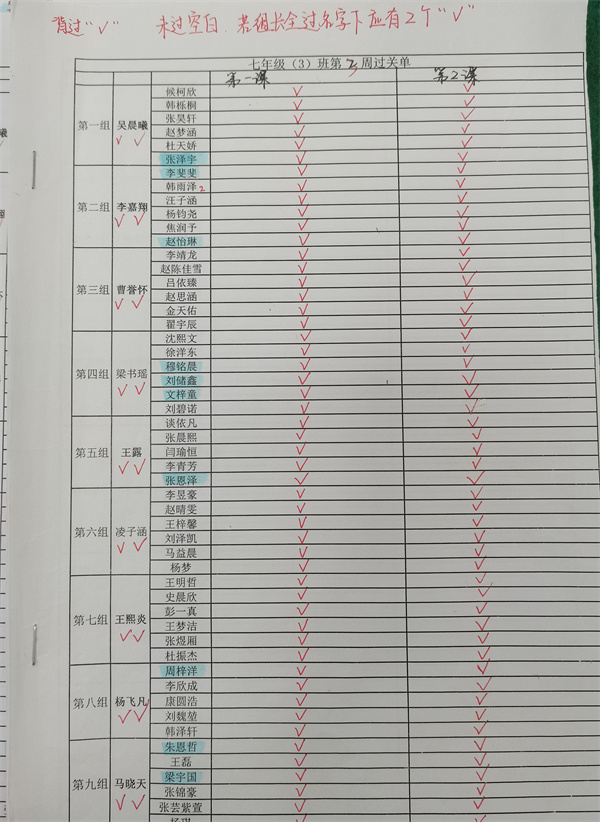 背过“√” 未过空白，若组长全过名字下应有2个“√”
七年级（3）班第3周过关单
第一课 第2课
候柯欣 √ √
韩栎桐 √ √
张昊轩 √ √
第一组 吴晨曦 √ √ 赵梦涵 √ √
杜天娇 √ √
张泽宇 √ √
李斐斐 √ √
韩雨泽2 √ √
第二组 李嘉翔 √ √ 汪子涵 √ √
杨钧尧 √ √
焦润予 √ √
赵怡琳 √ √
李靖龙 √ √
赵陈佳雪 √ √
第三组 曹誉怀 √ √ 吕依臻 √ √
赵思涵 √ √
金天佑 √ √
翟宇辰 √ √
沈熙文 √ √
徐洋东 √ √
第四组 梁书瑶 √ √ 穆铭晨 √ √
刘储鑫 √ √
文梓童 √ √
刘碧诺 √ √
谈依凡 √ √
张晨熙 √ √
第五组 王露 √ √ 闫瑜恒 √ √
李青芳 √ √
张恩泽 √ √
李昱豪 √ √
赵晴雯 √ √
第六组 凌子涵 √ √ 王梓馨 √ √
刘泽凯 √ √
马益晨 √ √
杨梦 √ √
王明哲 √ √
史晨欣 √ √
第七组 王熙炎 √ √ 彭一真 √ √
王梦洁 √ √
张煜厢 √ √
杜振杰 √ √
周梓洋 √ √
李欣成 √ √
第八组 杨飞凡 √ √ 康圆浩 √ √
刘魏堃 √ √
韩泽轩 √ √
朱恩哲 √ √
王磊 √ √
第九组 马晓天 √ √ 梁宇国 √ √
张锦豪 √ √
张芸紫萱 √ √